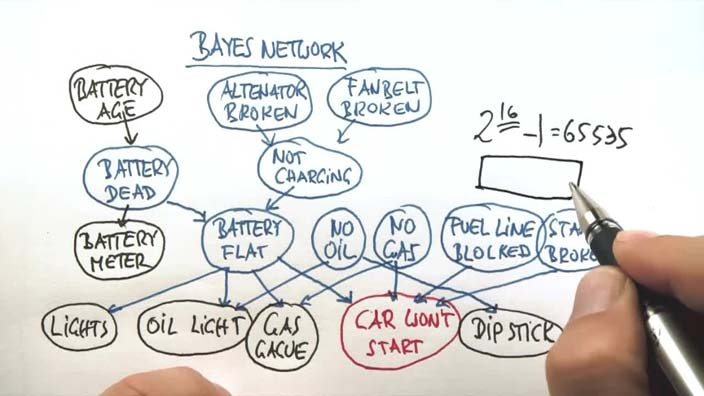 BAYES NETWORK
BATTERY
AGE
ALTENATOR
BROKEN
FANBELT
BROKEN
2^16 - 1 = 65535
BATTERY
DEAD
NOT
CHARGING
BATTERY
METER
BATTERY
FLAT
NO
OIL
NO
GAS
FUEL LINE
BLOCKED
LIGHTS
OIL LIGHT
GAS
GAGUE
CAR WON'T
START
DIPSTICK